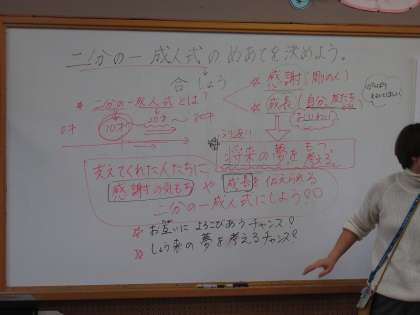 二分の一成人式のめあてを決めよう。
合しょう
* 二分の一成人式とは?
* 感謝
* 成長(自分
0才 10才 20才
将来の夢をもつ。考える。
支えてくれた人たちに
感謝の気もちや成長を伝えられる
二分の一成人式にしよう
* お互いによろこびあうチャンス!
* しょう来の夢を考えるチャンス!